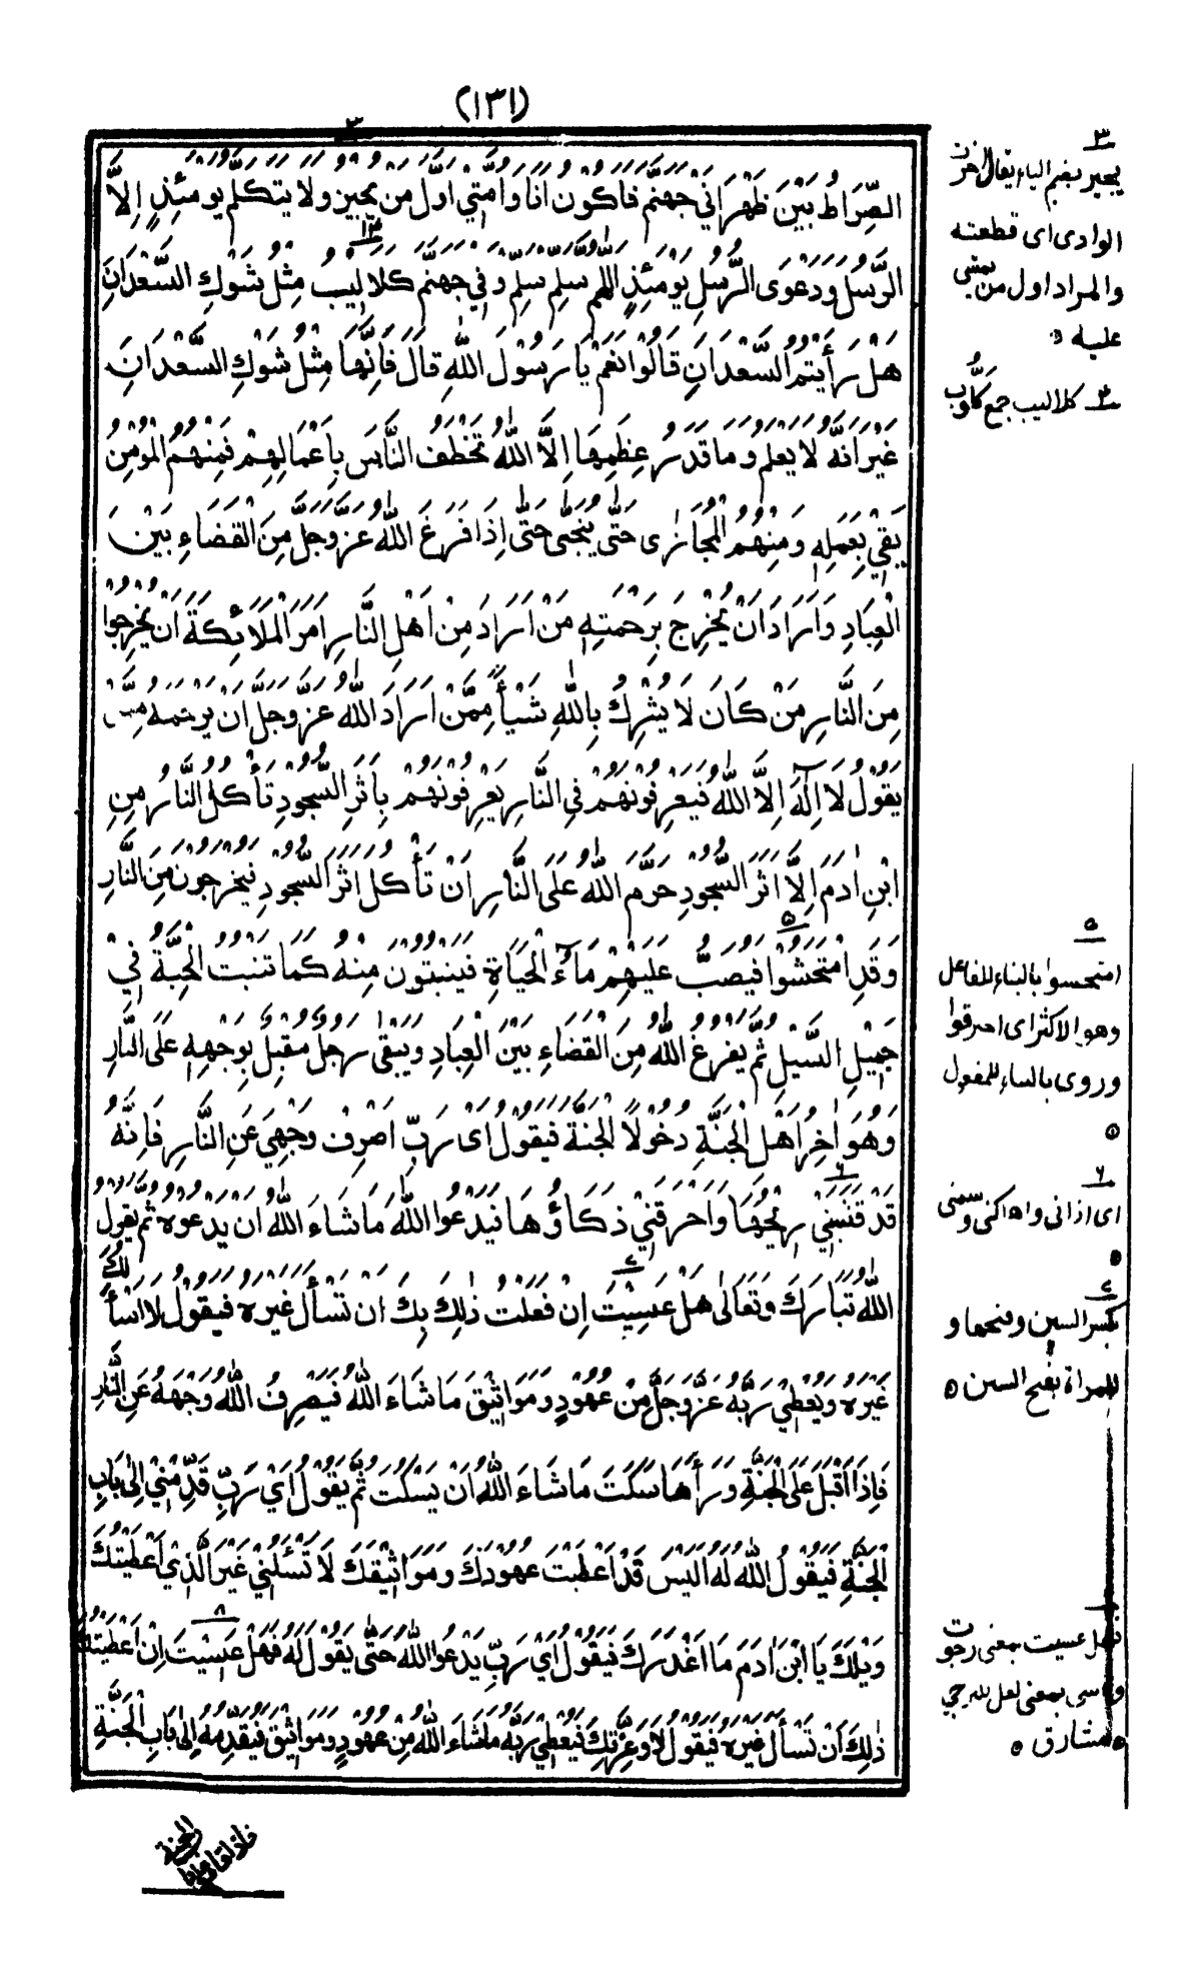 (١٣١)
الصِّرَاطُ بَيْنَ ظَهْرَانَيْ جَهَنَّمَ فَاَكُونُ اَنَا وَاُمَّتِي اَوَّلَ مَنْ يُجِيزُ وَلَا يَتَكَلَّمُ يَوْمَئِذٍ اِلَّا
الرُّسُلُ وَدَعْوَى الرُّسُلِ يَوْمَئِذٍ اَللّٰهُمَّ سَلِّمْ سَلِّمْ وَفِي جَهَنَّمَ كَلَالِيبُ مِثْلُ شَوْكِ السَّعْدَانِ
هَلْ رَأَيْتُمُ السَّعْدَانَ قَالُوا نَعَمْ يَا رَسُوْلَ اللّٰهِ قَالَ فَاِنَّهَا مِثْلُ شَوْكِ السَّعْدَانِ
غَيْرَ اَنَّهُ لَا يَعْلَمُ وَمَا قَدْرُ عِظَمِهَا اِلَّا اللّٰهُ تَخْطَفُ النَّاسَ بِاَعْمَالِهِمْ فَمِنْهُمُ الْمُؤْمِنُ
يَقِيَ بِعَمَلِهِ وَمِنْهُمُ الْمُجَازٰى حَتّٰى يُنَجّٰى حَتّٰى اِذَا فَرَغَ اللّٰهُ عَزَّ وَجَلَّ مِنَ الْقَضَاءِ بَيْنَ
الْعِبَادِ وَاَرَادَ اَنْ يُخْرِجَ بِرَحْمَتِهِ مَنْ اَرَادَ مِنْ اَهْلِ النَّارِ اَمَرَ الْمَلَائِكَةَ اَنْ يُخْرِجُوا
مِنَ النَّارِ مَنْ كَانَ لَا يُشْرِكُ بِاللّٰهِ شَيْأً مِمَّنْ اَرَادَ اللّٰهُ عَزَّ وَجَلَّ اَنْ يَرْحَمَهُ مِمَّنْ
يَقُوْلُ لَا اِلٰهَ اِلَّا اللّٰهُ فَيَعْرِفُوْنَهُمْ فِي النَّارِ يَعْرِفُوْنَهُمْ بِاَثَرِ السُّجُوْدِ تَأْكُلُ النَّارُ مِنِ
ابْنِ اٰدَمَ اِلَّا اَثَرَ السُّجُوْدِ حَرَّمَ اللّٰهُ عَلَى النَّارِ اَنْ تَأْكُلَ اَثَرَ السُّجُوْدِ فَيُخْرَجُوْنَ مِنَ النَّارِ
وَقَدِ امْتَحَشُوْا فَيُصَبُّ عَلَيْهِمْ مَآءُ الْحَيَاةِ فَيَنْبُتُوْنَ مِنْهُ كَمَا تَنْبُتُ الْحِبَّةُ فِيْ
حَمِيْلِ السَّيْلِ ثُمَّ يَفْرُغُ اللّٰهُ مِنَ الْقَضَاءِ بَيْنَ الْعِبَادِ وَيَبْقٰى رَجُلٌ مُقْبِلٌ بِوَجْهِهِ عَلَى النَّارِ
وَهُوَ اٰخِرُ اَهْلِ الْجَنَّةِ دُخُوْلًا الْجَنَّةَ فَيَقُوْلُ اَىْ رَبِّ اصْرِفْ وَجْهِيَ عَنِ النَّارِ فَاِنَّهُ
قَدْ قَشَبَنِيْ رِيْحُهَا وَاَحْرَقَنِيْ ذَكَاؤُهَا فَيَدْعُوا اللّٰهَ مَا شَاءَ اللّٰهُ اَنْ يَدْعُوَهُ ثُمَّ يَقُوْلُ
اللّٰهُ تَبَارَكَ وَتَعَالٰى هَلْ عَسِيْتَ اِنْ فَعَلْتُ ذٰلِكَ بِكَ اَنْ تَسْأَلَ غَيْرَهُ فَيَقُوْلُ لَا اَسْأَلُكَ
غَيْرَهُ وَيُعْطِيْ رَبَّهُ عَزَّ وَجَلَّ مِنْ عُهُوْدٍ وَمَوَاثِيْقَ مَا شَاءَ اللّٰهُ فَيَصْرِفُ اللّٰهُ وَجْهَهُ عَنِ النَّارِ
فَاِذَا اَقْبَلَ عَلَى الْجَنَّةِ وَرَاٰهَا سَكَتَ مَا شَاءَ اللّٰهُ اَنْ يَسْكُتَ ثُمَّ يَقُوْلُ اَيْ رَبِّ قَدِّمْنِيْ اِلٰى بَابِ
الْجَنَّةِ فَيَقُوْلُ اللّٰهُ لَهُ اَلَيْسَ قَدْ اَعْطَيْتَ عُهُوْدَكَ وَمَوَاثِيْقَكَ لَا تَسْئَلُنِيْ غَيْرَ الَّذِيْ اَعْطَيْتُكَ
وَيْلَكَ يَا ابْنَ اٰدَمَ مَا اَغْدَرَكَ فَيَقُوْلُ اَيْ رَبِّ يَدْعُوا اللّٰهَ حَتّٰى يَقُوْلَ لَهُ فَهَلْ عَسِيْتَ اِنْ اَعْطَيْتُكَ
ذٰلِكَ اَنْ تَسْأَلَ غَيْرَهُ فَيَقُوْلُ لَا وَعِزَّتِكَ فَيُعْطِيْ رَبَّهُ مَا شَاءَ اللّٰهُ مِنْ عُهُوْدٍ وَمَوَاثِيْقَ فَيُقَدِّمُهُ اِلٰى بَابِ الْجَنَّةِ
٣
يجيز بضم الياء يقال اجزت
الوادى اى قطعته
والمراد اول من يمشى
عليه
كلاليب جمع كَلُّوب
٥
امتحشوا بالبناء للفاعل
وهو الاكثر اى احرقوا
وروى بالبناء للمفعول
٦
اى اذانى واهلكنى وسمنى
٤
بكسر السين وفتحها و
للمرأة بفتح السين
فهل عسيت بمعنى رجوت
وعسى بمعنى لعل للترجى
مشارق